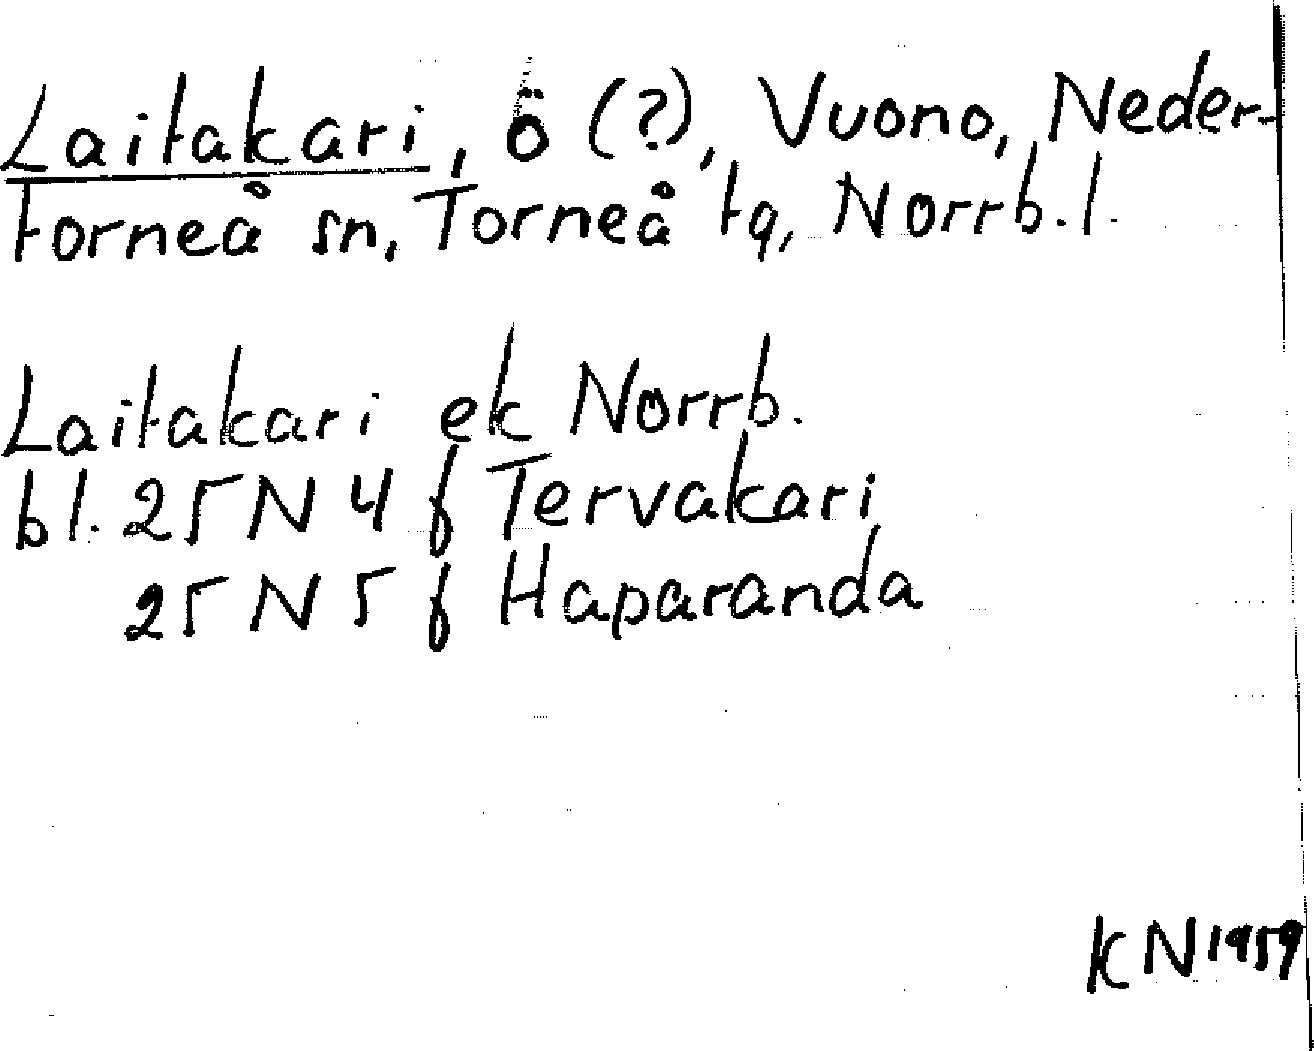 Laitakari, ö (?), Vuono, Neder-
torneå sn, Torneå tg, Norrb. l.
Laitakari ek Norrb.
bl. 25 N 4 f Tervakari
25 N 5 f Haparanda
KN 1959